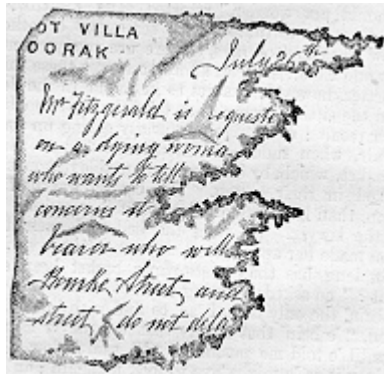 OT VILLA
OORAK
July 26th
Mr Fitzgerald is requeste
on a dying woma
who wants to tell
concerns
bearer who will
Bourke Street and
street, do not dela